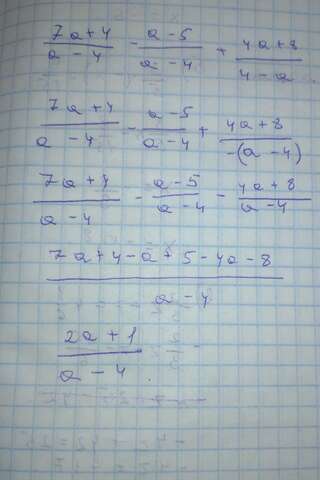 (7a+4)/(a-4) - (a-5)/(a-4) + (4a+8)/(4-a)
(7a+4)/(a-4) - (a-5)/(a-4) + (4a+8)/(-(a-4))
(7a+4)/(a-4) - (a-5)/(a-4) - (4a+8)/(a-4)
(7a+4-a+5-4a-8)/(a-4)
(2a+1)/(a-4).